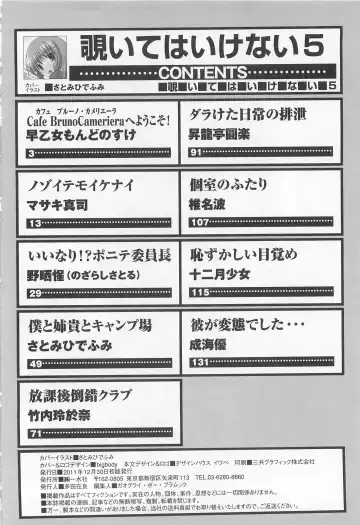 覗いてはいけない5
カバー
イラスト ■さとみひでふみ
CONTENTS
■覗■い■て■は■い■け■な■い■5
カフェ ブルーノ・カメリエーラ
Cafe BrunoCamerieraへようこそ!
早乙女もんどのすけ
3
ノゾイテモイケナイ
マサキ真司
13
いいなり!?ポニテ委員長
野晒惺(のざらしさとる)
29
僕と姉貴とキャンプ場
さとみひでふみ
49
放課後倒錯クラブ
竹内玲於奈
71
ダラけた日常の排泄
昇龍亭圓楽
91
個室のふたり
椎名波
107
恥ずかしい目覚め
十二月少女
115
彼が変態でした・・・
成海優
131
カバーイラスト■さとみひでふみ
カバー&ロゴデザイン■bigbody 本文デザイン&ロゴ■デザインハウス イワベ 印刷■三共グラフィック株式会社
発行日■2011年12月30日初版発行
発行所■㈱一水社 〒162-0805 東京都新宿区矢来町113 TEL.03-6280-8660
発行人■多田在良 編集人■ガオグライ・ポー・プラムック
■掲載作品はすべてフィクションです。実在の人物、団体、事件、思想などには一切関係ありません。
■本誌掲載の漫画、記事などの無断複写、転載を禁じます。
■万一、製本などの間違いがありました場合、当社の送料負担でお取替えいたしますので、ご返送ください。